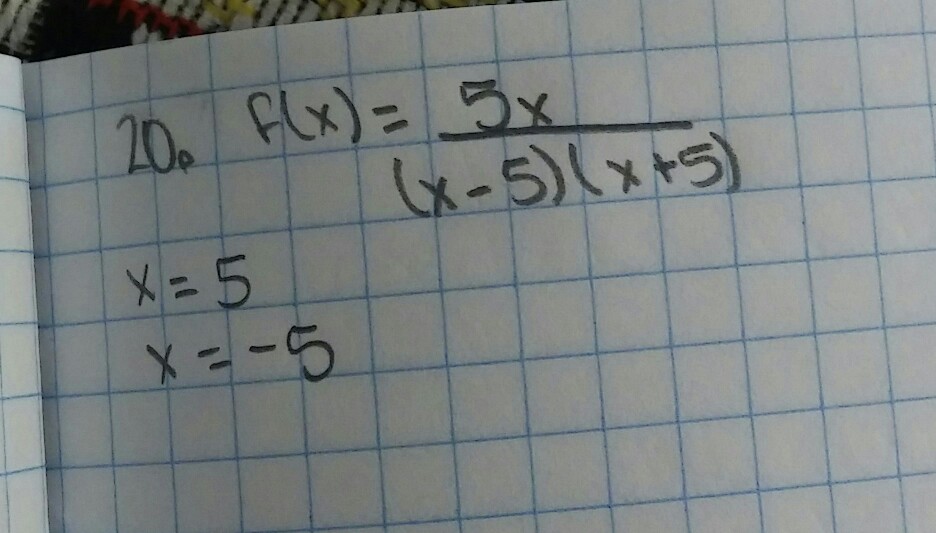 20. f(x) = 5x / (x-5)(x+5)
x = 5
x = -5